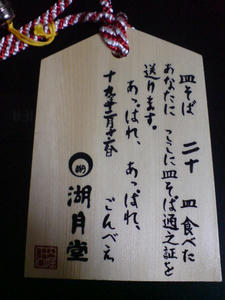 皿そば 二十 皿食べた
あなたに ここに皿そば通之証を
送ります。
あっぱれ、あっぱれ、
ごんべえ
湖月堂